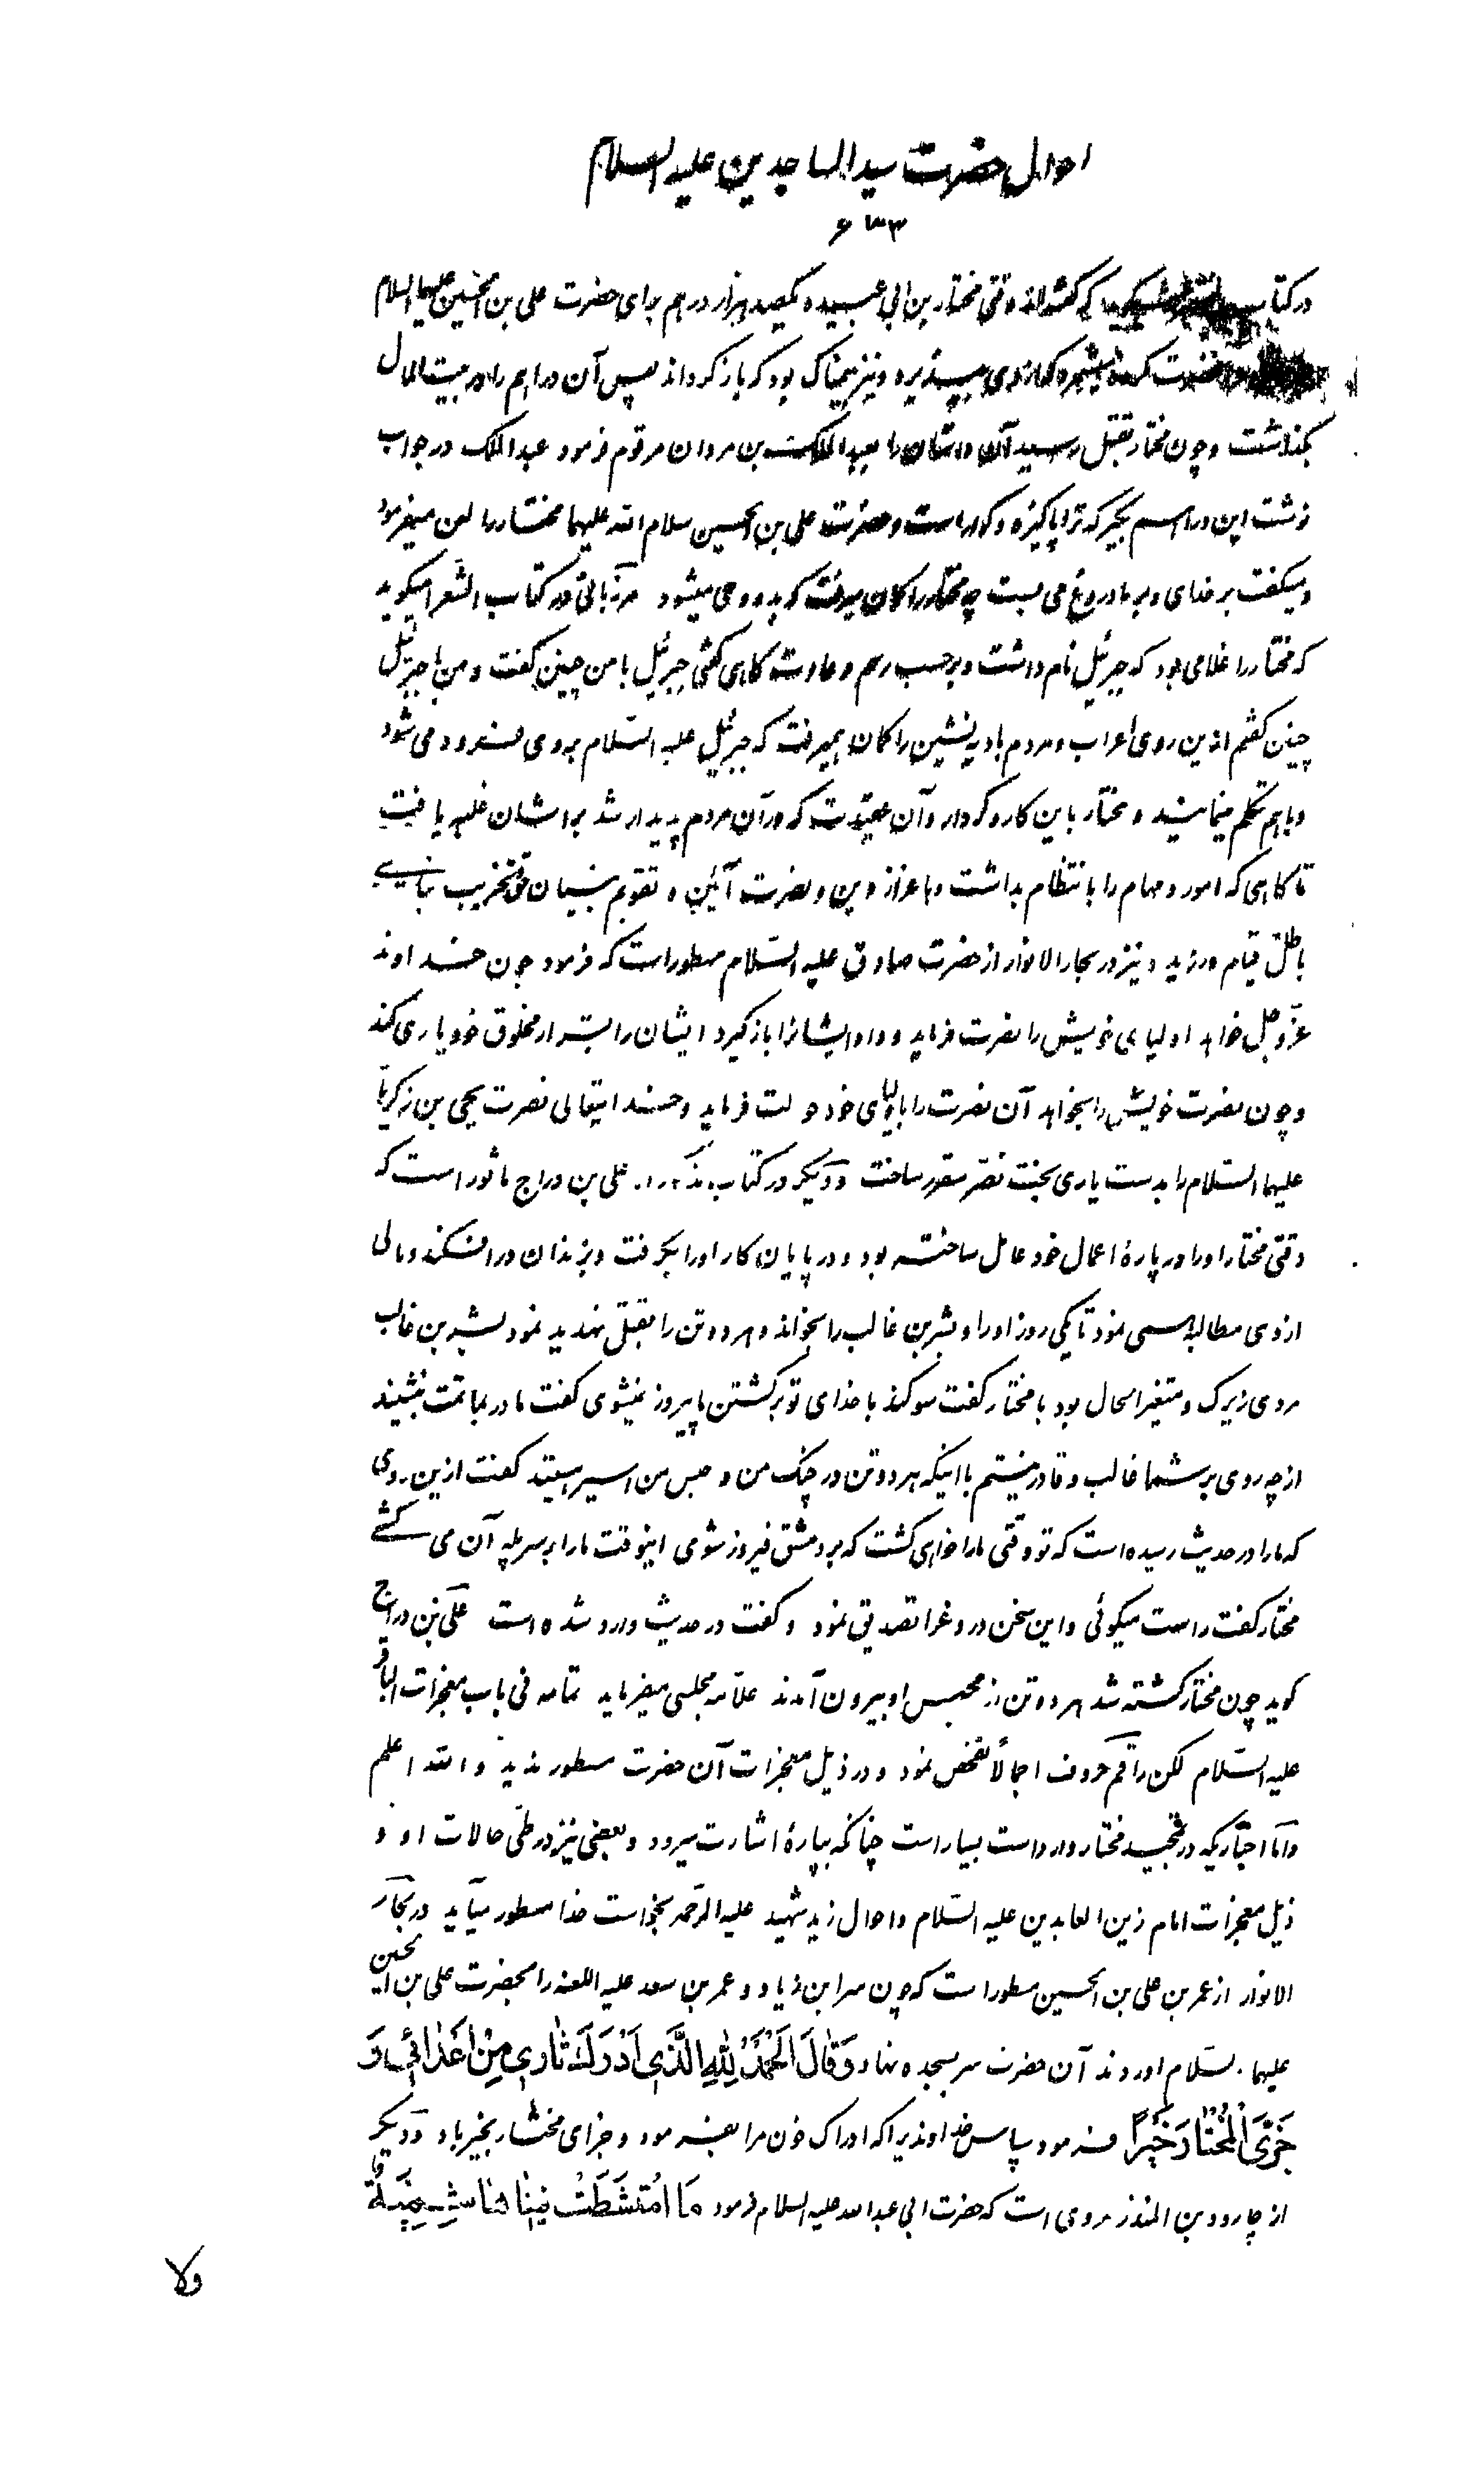 احوال حضرت سید الساجدین علیه السلام
۶۳۳
در کتاب که گفته‌اند وقتی مختار بن ابی عبیده یکصد هزار درهم برای حضرت علی بن الحسین علیهما السلام
حضرت می‌پذیرد و نیز بیمناک بود که باز گرداند پس آن دراهم را در بیت المال
بگذاشت و چون مختار بقتل رسید آن داستان را بعبد الملک بن مروان مرقوم فرمود عبد الملک در جواب
نوشت این دراهم بگیر که ترا پاکیزه و گواراست و حضرت علی بن الحسین سلام الله علیهما مختار را لعن میفرمود
و میگفت بر خدای و بر ما دروغ می بست چه مختار را گمان میرفت که بدو وحی میشود مرزبانی در کتاب الشعرا میگوید
که مختار را غلامی بود که جبرئیل نام داشت و بر حسب رسم و عادت گاهی گفتی جبرئیل با من چنین گفت و من با جبرئیل
چنین گفتم ازین روی اعراب و مردم بادیه نشین را گمان همیرفت که جبرئیل علیه السّلام بروی فرود می شود
و با هم تکلم مینمایند و مختار باین کار و کردار و آن عقیدت که در آن مردم پدیدار شد بر ایشان غلبه یافت
تا گاهی که امور و مهام را بانتظام بداشت و باعزاز دین و نصرت آئین و تقویم بنیان حق و تخریب مبانی
باطل قیام ورزید و نیز در بحار الانوار از حضرت صادق علیه السّلام مسطور است که فرمود چون خداوند
عزّ و جل خواهد اولیای خویش را نصرت فرماید و داد ایشانرا باز گیرد ایشان را بشرار مخلوق خود یاری کند
و چون نصرت خویش را بخواهد آن نصرت را باولیای خود حوالت فرماید و خداتیعالی نصرت یحیی بن زکریّا
علیهما السّلام را بدست یاری بخت نصّر مقرر ساخت و دیگر در کتاب مذکور از علی بن دراج ماثور است که
وقتی مختار او را در پارهٔ اعمال خود عامل ساخته بود و در پایان کار او را بگرفت و بزندان در افکند و مالی
از وی مطالبه همی نمود تا یکی روز او را و بشر بن غالب را بخواند و هر دو تن را بقتل تهدید نمود بشر بن غالب
مردی زیرک و متغیر الحال بود با مختار گفت سوگند با خدای تو بر کشتن ما پیروز نمیشوی گفت مادر بماتمت بنشیند
از چه روی بر شما غالب و قادر نیستم با اینکه هر دو تن در چنگ من و حبس من اسیر هستید گفت ازین روی
که ما را در حدیث رسیده است که تو وقتی ما را خواهی کشت که بر دمشق فیروز شوی اینوقت ما را بر سر پله آن می کشی
مختار گفت راست میگوئی و این سخن دروغ را تصدیق نمود و گفت در حدیث وارد شده است علی بن دراج
گوید چون مختار کشته شد هر دو تن از محبس او بیرون آمدند علاّمه مجلسی میفرماید تمامه فی باب معجزات الباقر
علیه السّلام لکن راقم حروف اجمالاً تفحص نمود و در ذیل معجزات آن حضرت مسطور ندید و الله اعلم
و امّا اخباریکه در تمجید مختار وارد است بسیار است چنانکه بپارهٔ اشارت میرود و بعضی نیز در طی حالات او و
ذیل معجزات امام زین العابدین علیه السّلام و احوال زید شهید علیه الرّحمه بخواست خدا مسطور میآید در بحار
الانوار از عمر بن علی بن الحسین مسطور است که چون سر ابن زیاد و عمر بن سعد علیه اللعنه را بحضرت علی بن الحسین
علیهما السّلام آوردند آن حضرت سر بسجده نهاد وَ قٰالَ اَلْحَمْدُ لِلّٰهِ الَّذی اَدْرَكَ ثٰاری مِنْ اَعْدٰائی وَ
جَزَی الْمُخْتٰارَ خَیْراً فرمود سپاس خداوندیرا که ادراک خون مرا بفرمود و جزای مختار بخیر باد و دیگر
از جارود بن المنذر مروی است که حضرت ابی عبد الله علیه السلام فرمود مَا امْتَشَطَتْ فینٰا هٰاشِمِیَّةٌ
ولا